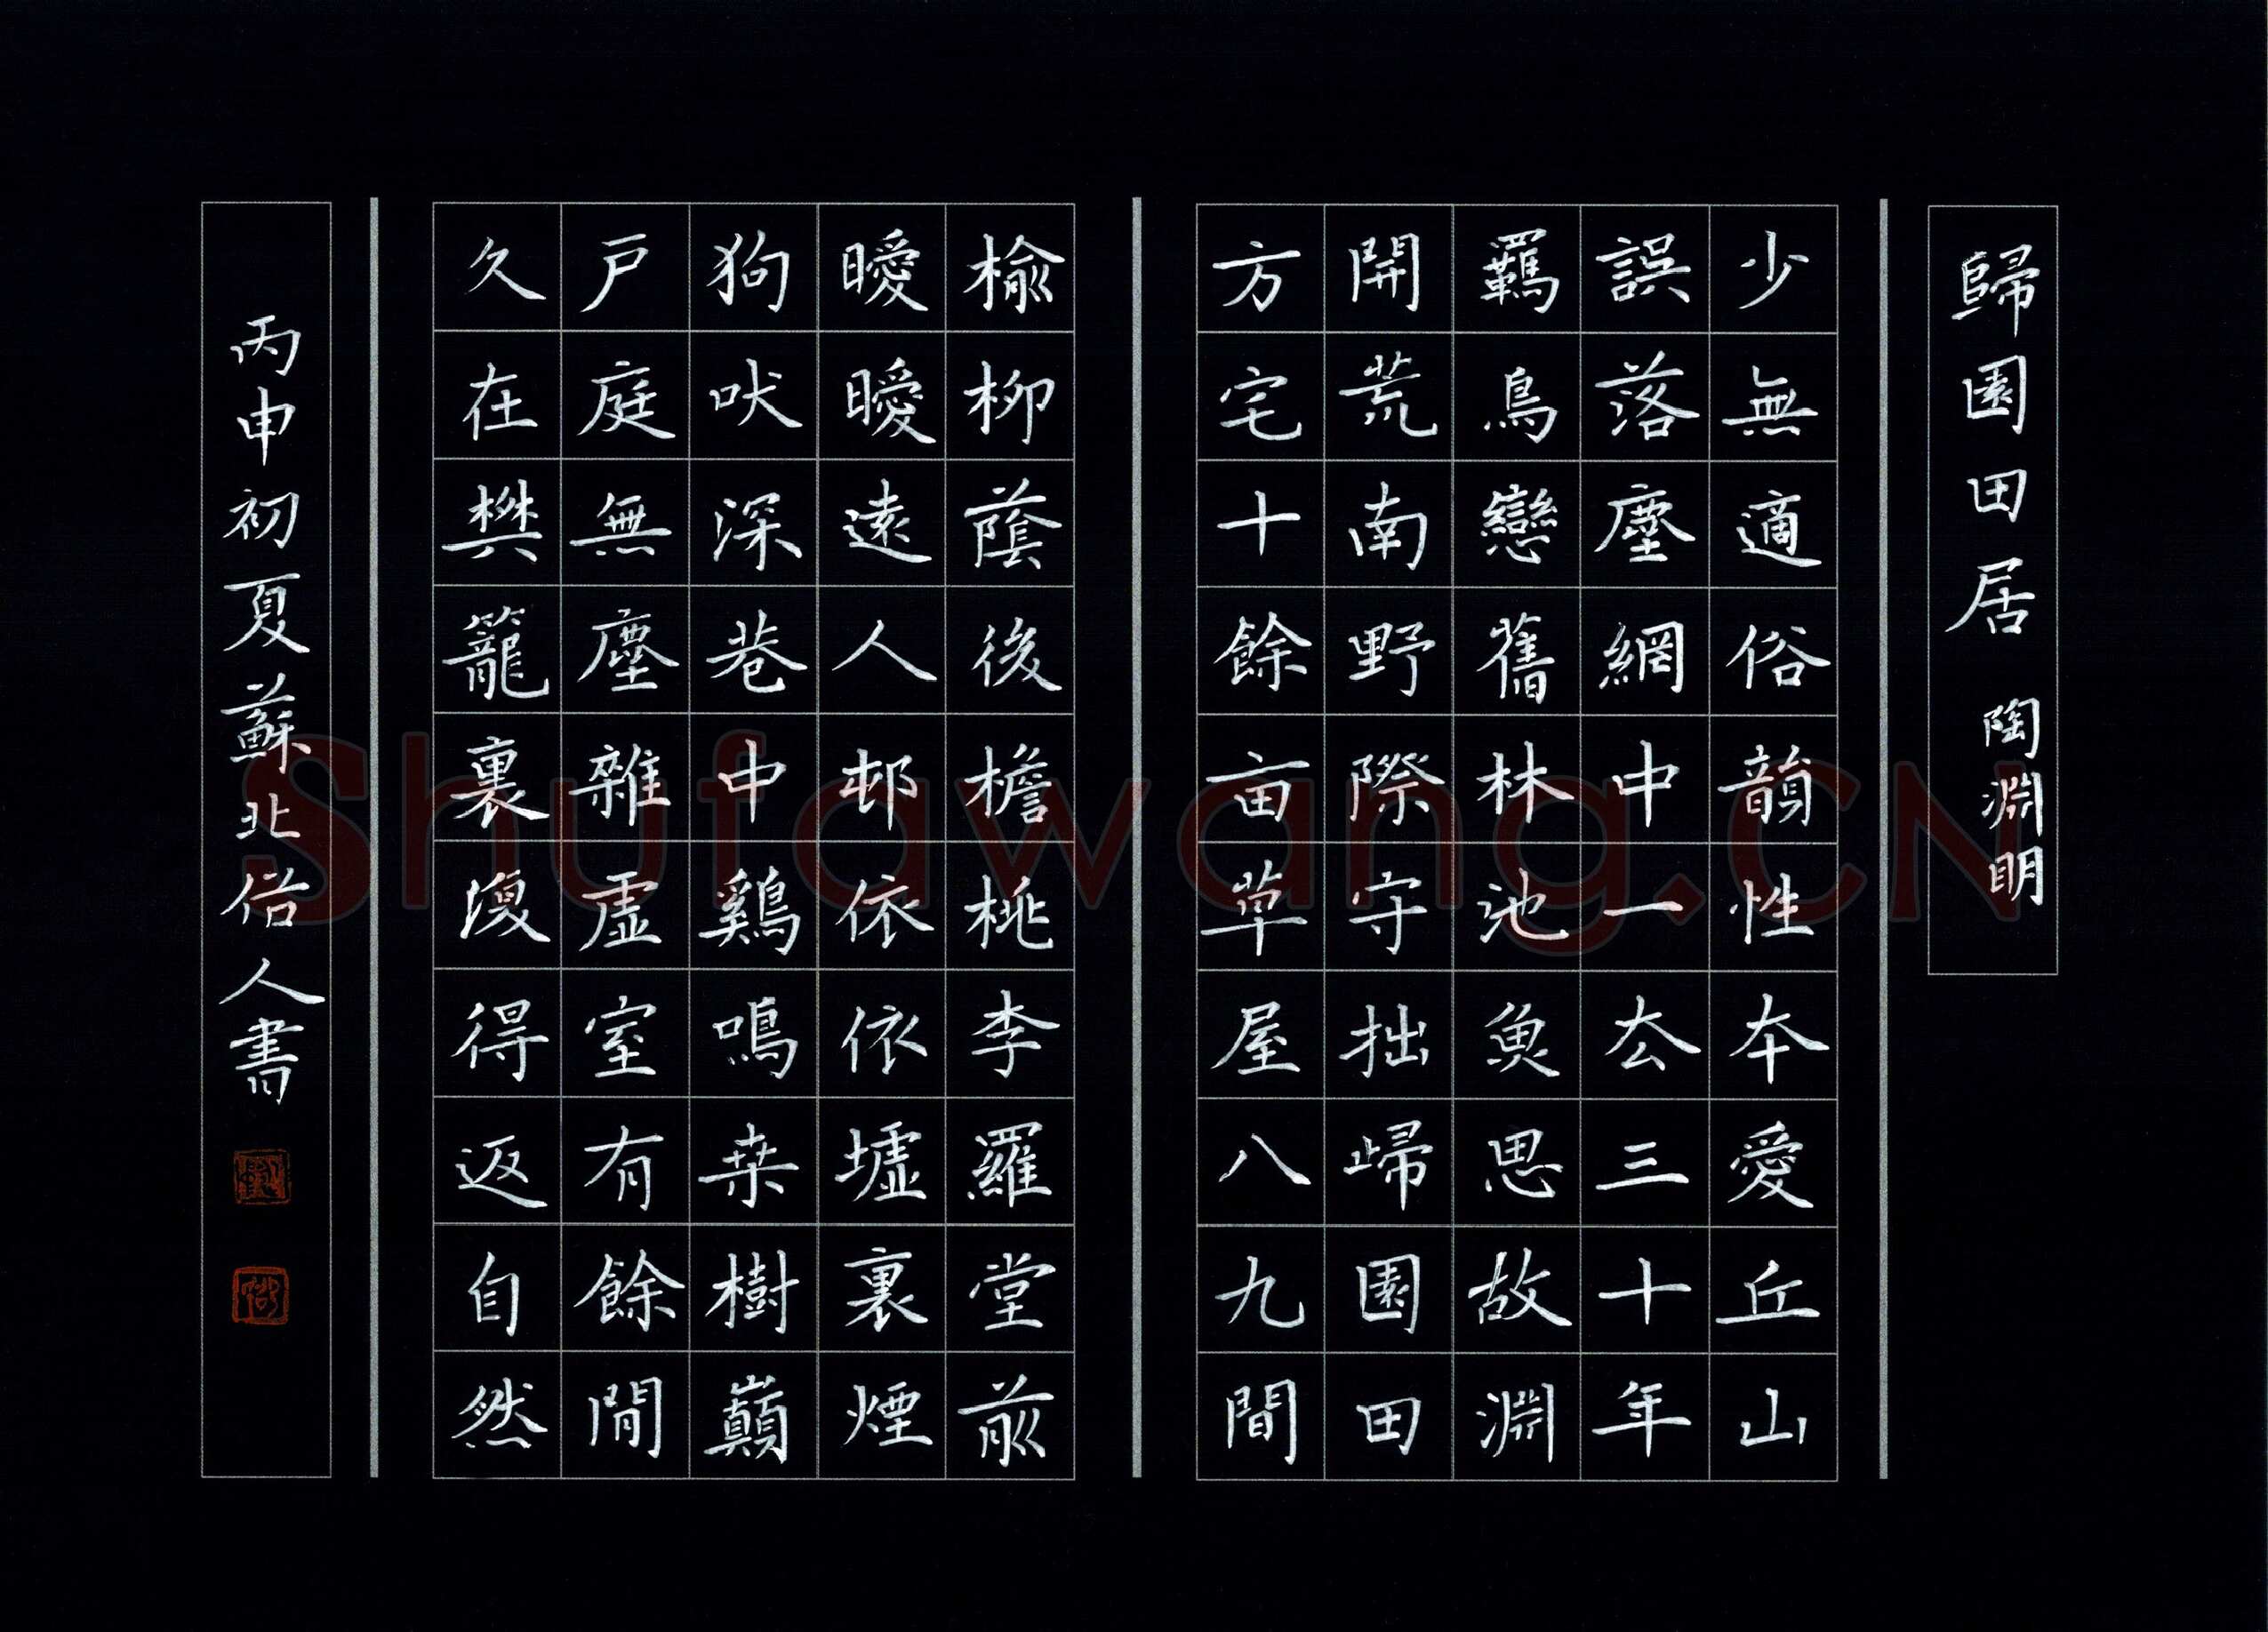 歸園田居 陶淵明
少無適俗韻性本愛丘山
誤落塵網中一厺三十年
羈鳥戀舊林池魚思故淵
開荒南野際守拙歸園田
方宅十餘亩草屋八九間
榆柳蔭後檐桃李羅堂前
曖曖遠人邨依依墟裏煙
狗吠深巷中鷄鳴桑樹巔
戶庭無塵雜虛室有餘閒
久在樊籠裏復得返自然
丙申初夏蘇北俗人書
Shufawang.CN